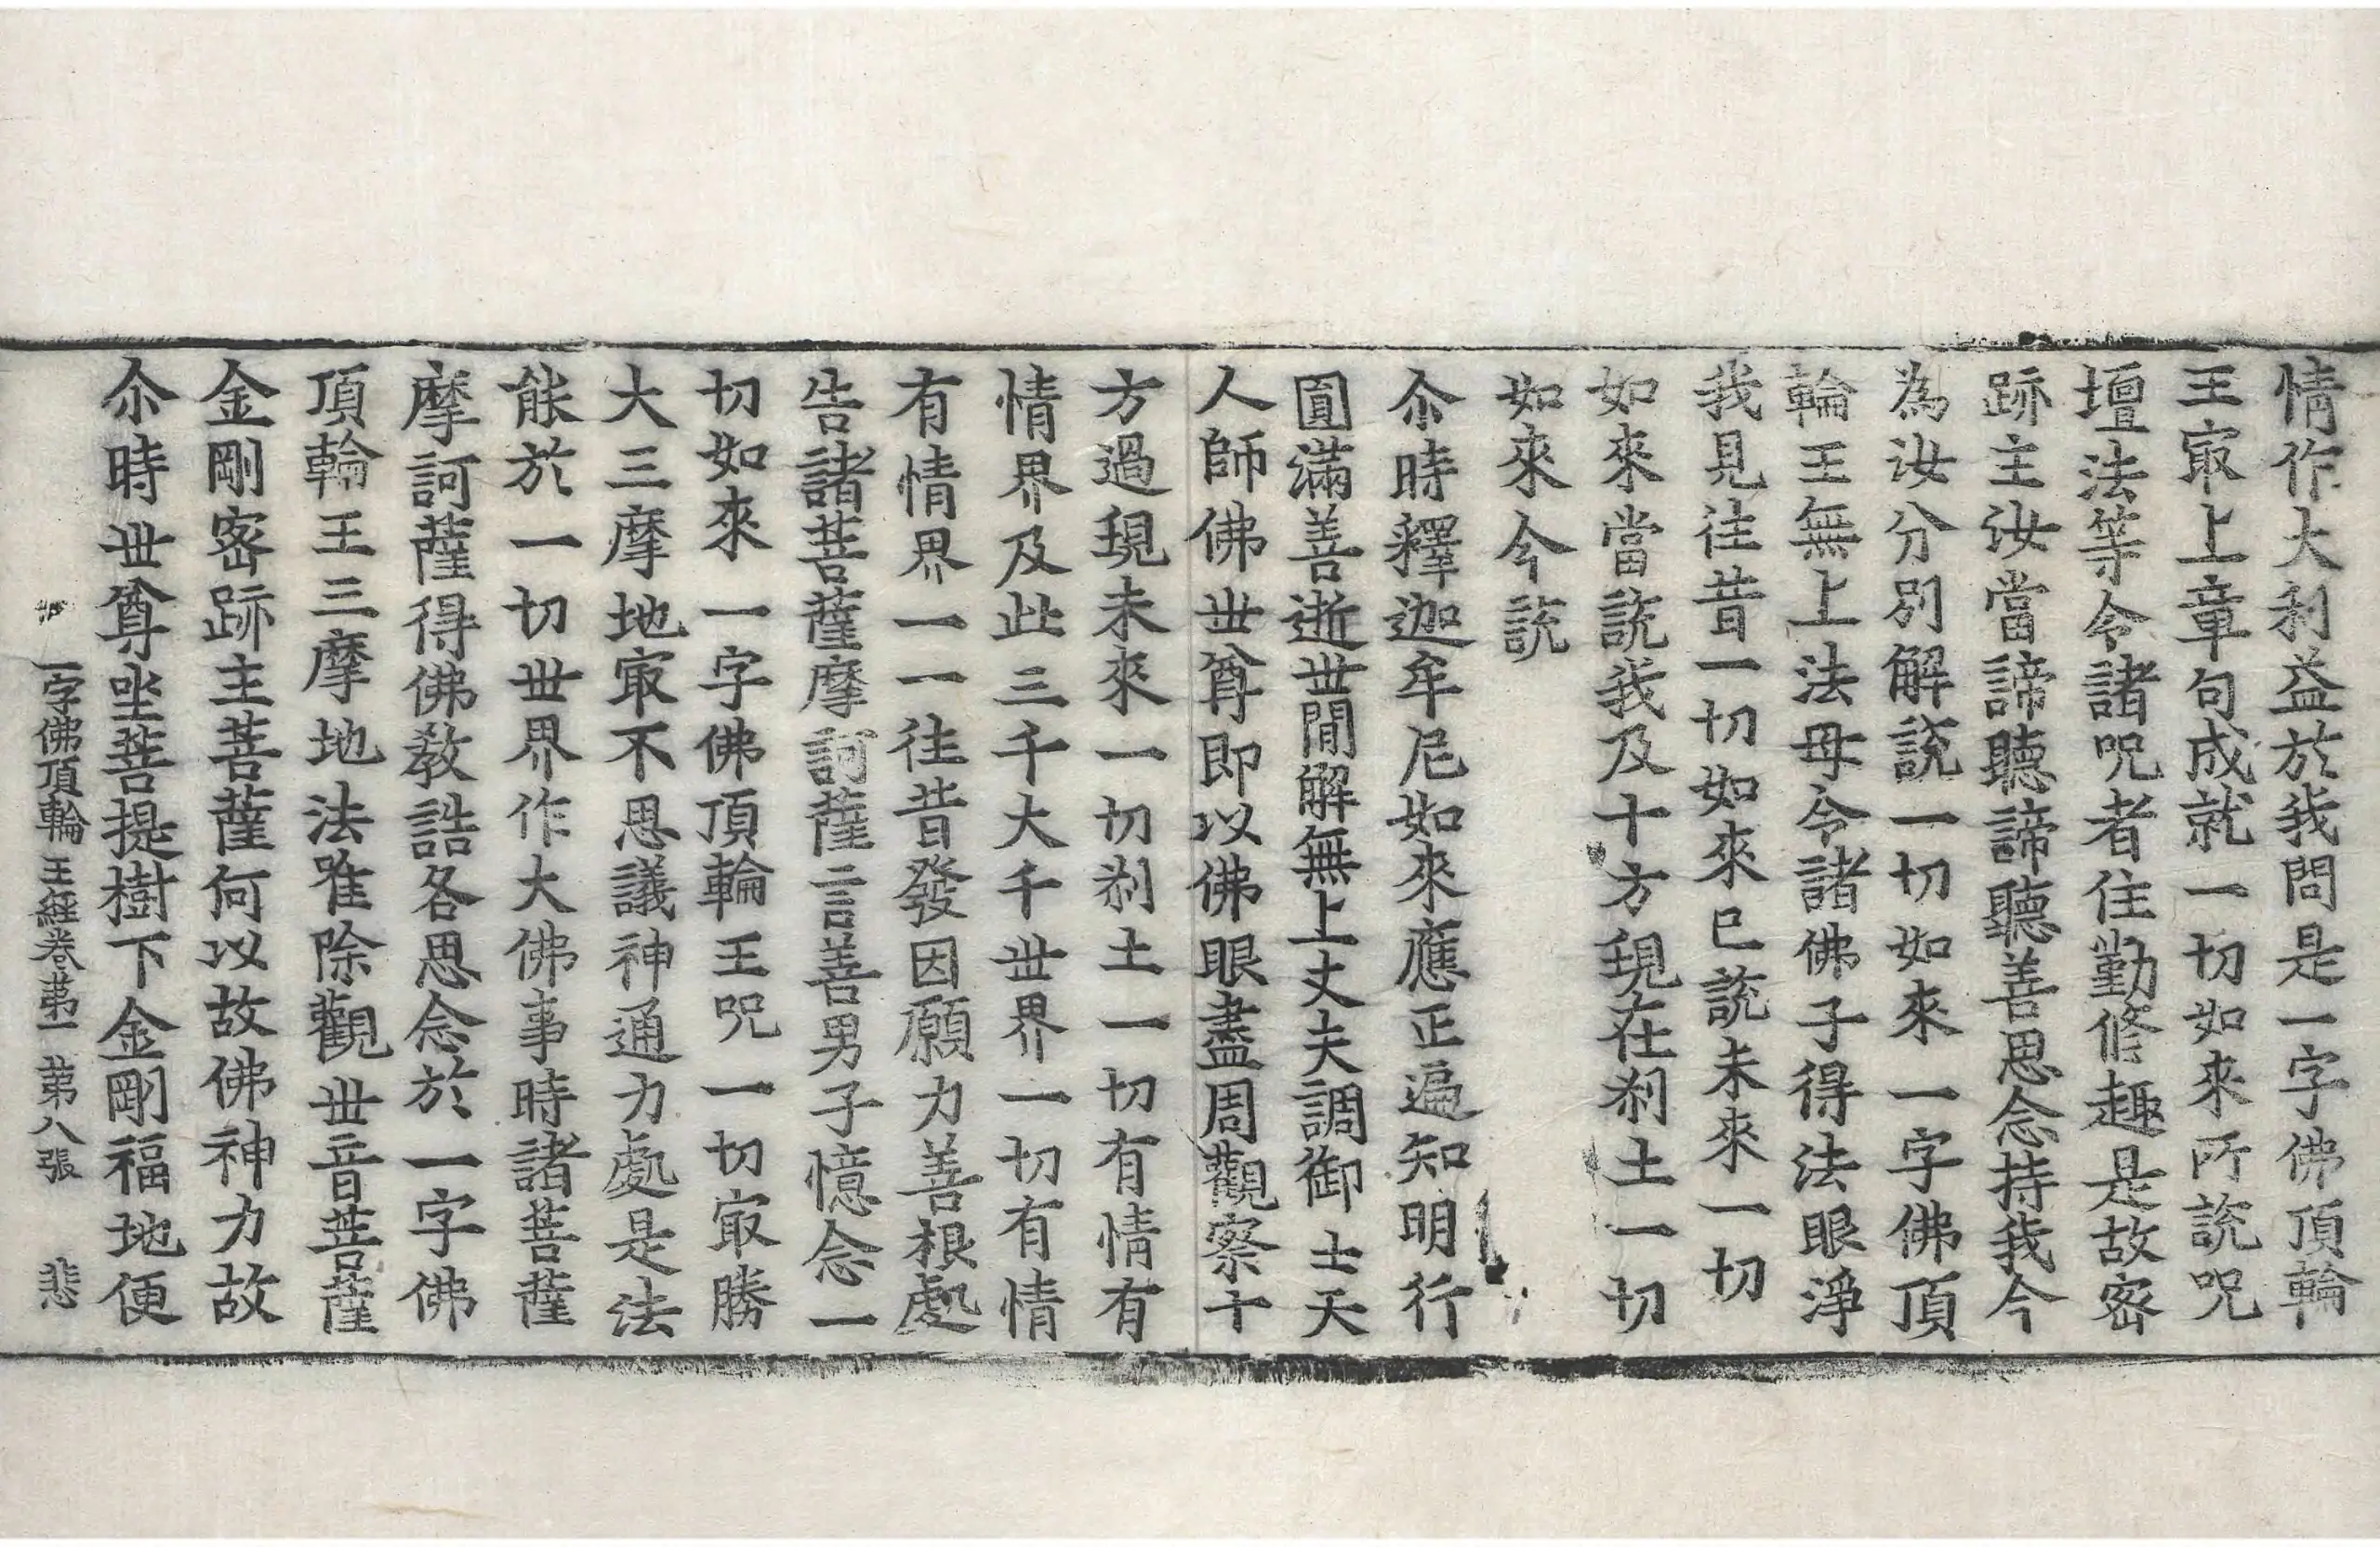 情作大利益於我問是一字佛頂輪
王㝡上章句成就一切如來所說呪
壇法等令諸呪者住勤修趣是故密
跡主汝當諦聽諦聽善思念持我今
為汝分別解說一切如來一字佛頂
輪王無上法母令諸佛子得法眼淨
我見往昔一切如來已說未來一切
如來當說我及十方現在刹土一切
如來今說
尒時釋迦牟尼如來應正遍知明行
圓滿善逝世間解無上丈夫調御士天
人師佛世尊即以佛眼盡周觀察十
方過現未來一切刹土一切有情有
情界及此三千大千世界一切有情
有情界一一往昔發因願力善根處
告諸菩薩摩訶薩言善男子憶念一
切如來一字佛頂輪王呪一切㝡勝
大三摩地㝡不思議神通力處是法
能於一切世界作大佛事時諸菩薩
摩訶薩得佛教誥各思念於一字佛
頂輪王三摩地法唯除觀世音菩薩
金剛密跡主菩薩何以故佛神力故
尒時世尊坐菩提樹下金剛福地便
一字佛頂輪王經卷第一 第八張 悲